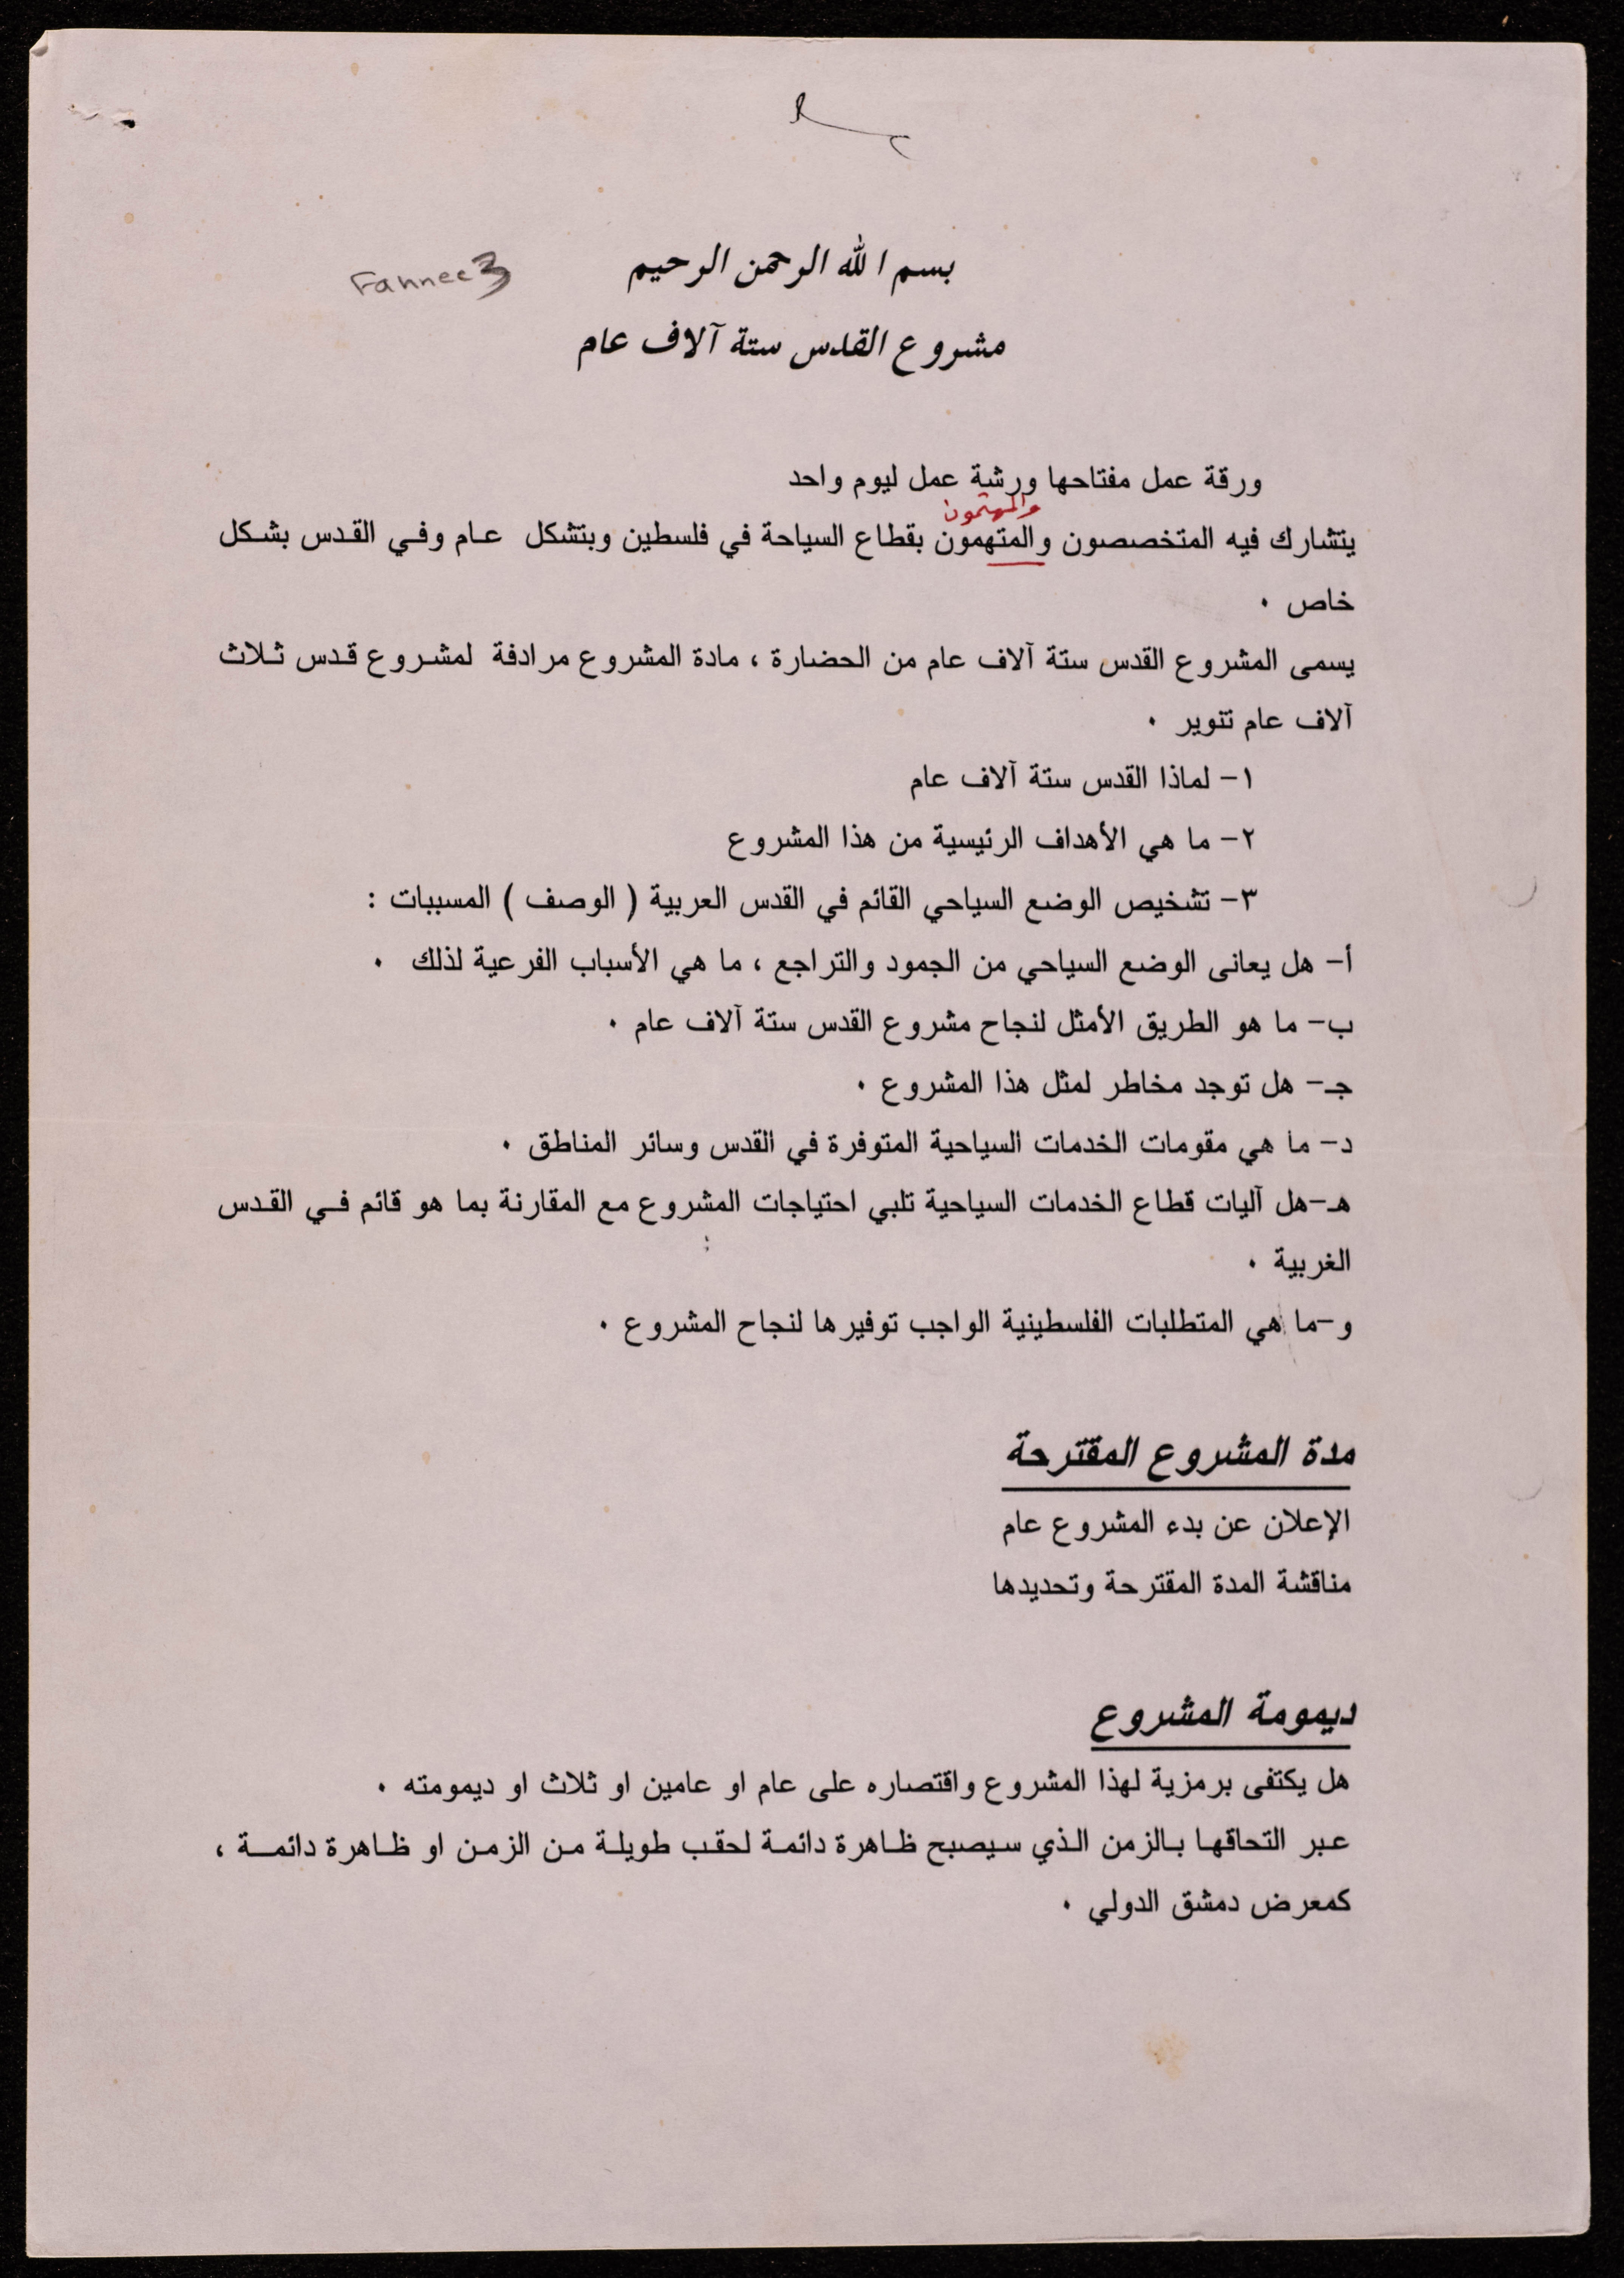 بسم الله الرحمن الرحيم
Fannee3
مشروع القدس ستة آلاف عام
ورقة عمل مفتاحها ورشة عمل ليوم واحد
والمهتمون
يتشارك فيه المتخصصون والمتهمون بقطاع السياحة في فلسطين وبتشكل عام وفي القدس بشكل
خاص ٠
يسمى المشروع القدس ستة آلاف عام من الحضارة ، مادة المشروع مرادفة لمشروع قدس ثلاث
آلاف عام تنوير ٠
١- لماذا القدس ستة آلاف عام
٢- ما هي الأهداف الرئيسية من هذا المشروع
٣- تشخيص الوضع السياحي القائم في القدس العربية ( الوصف ) المسببات :
أ- هل يعانى الوضع السياحي من الجمود والتراجع ، ما هي الأسباب الفرعية لذلك ٠
ب- ما هو الطريق الأمثل لنجاح مشروع القدس ستة آلاف عام ٠
جـ- هل توجد مخاطر لمثل هذا المشروع ٠
د- ما هي مقومات الخدمات السياحية المتوفرة في القدس وسائر المناطق ٠
هـ-هل آليات قطاع الخدمات السياحية تلبي احتياجات المشروع مع المقارنة بما هو قائم في القدس
الغربية ٠
و-ما هي المتطلبات الفلسطينية الواجب توفيرها لنجاح المشروع ٠
مدة المشروع المقترحة
الإعلان عن بدء المشروع عام
مناقشة المدة المقترحة وتحديدها
ديمومة المشروع
هل يكتفى برمزية لهذا المشروع واقتصاره على عام او عامين او ثلاث او ديمومته ٠
عبر التحاقها بالزمن الذي سيصبح ظاهرة دائمة لحقب طويلة من الزمن او ظاهرة دائمة ،
كمعرض دمشق الدولي ٠